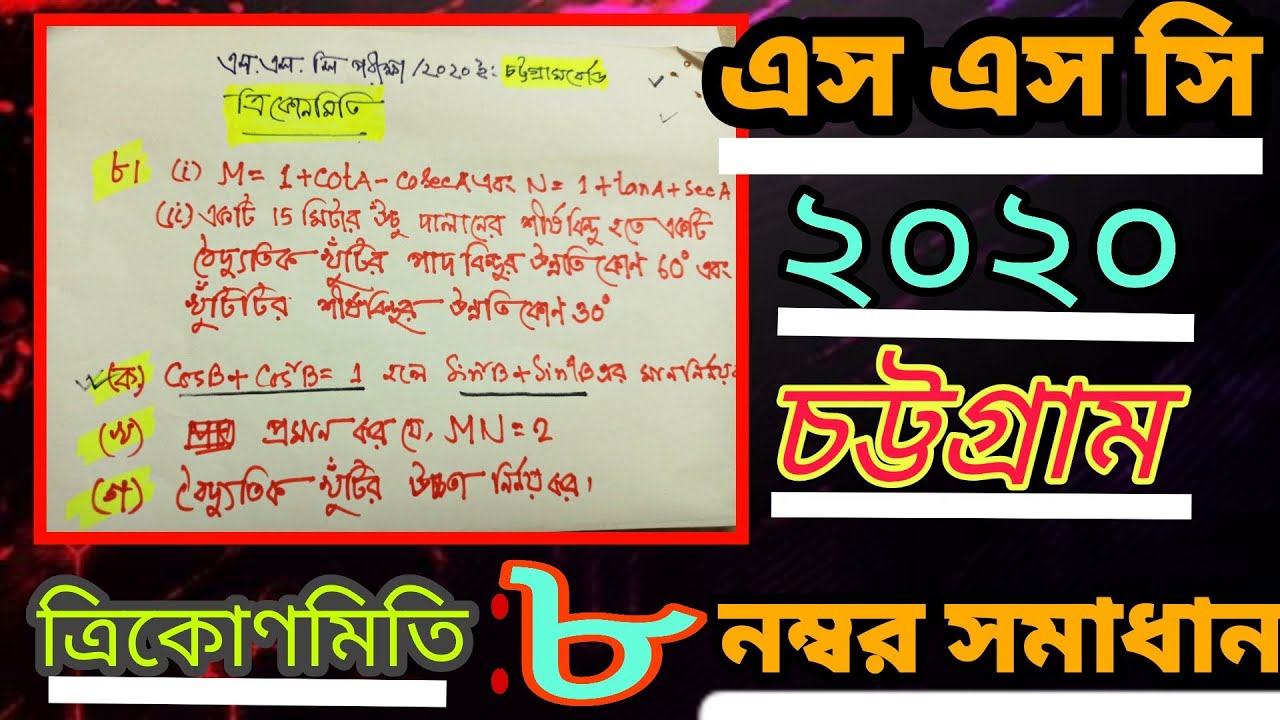 এস.এস.সি পরীক্ষা/২০২০ ইং চট্টগ্রাম বোর্ড
ত্রিকোনমিতি
৮। (i) M = 1+cotA - cosecA এবং N = 1+tanA+secA
(ii) একটি 15 মিটার উচু দালানের শীর্ষবিন্দু হতে একটি
বৈদ্যুতিক খুঁটির পাদবিন্দুর উন্নতি কোণ 60° এবং
খুঁটিটির শীর্ষবিন্দুর উন্নতি কোণ 30°
(ক) CosB + Cos²B = 1 হলে Sin²B + Sin⁴B এর মান নির্নয়
(খ) প্রমান কর যে, MN = 2
(গ) বৈদ্যুতিক খুঁটির উচ্চতা নির্নয় কর।
এস এস সি
২০২০
চট্টগ্রাম
ত্রিকোণমিতি : ৮ নম্বর সমাধান